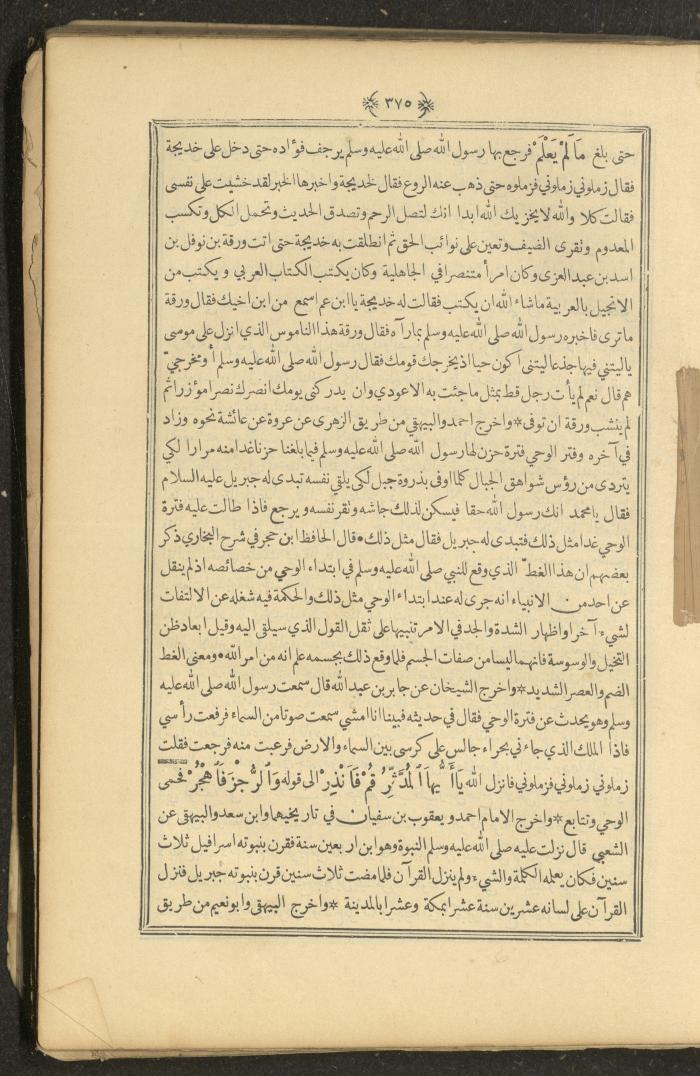 ٣٧٥
حتى بلغ مَا لَمْ يَعْلَمْ فرجع بها رسول الله صلى الله عليه وسلم يرجف فؤاده حتى دخل على خديجة
فقال زملوني زملوني فزملوه حتى ذهب عنه الروع فقال لخديجة واخبرها الخبر لقد خشيت على نفسى
فقالت كلا والله لا يخزيك الله ابدا انك لتصل الرحم وتصدق الحديث وتحمل الكل وتكسب
المعدوم وتقرى الضيف وتعين على نوائب الحق ثم انطلقت به خديجة حتى اتت ورقة بن نوفل بن
اسد بن عبد العزى وكان امرأ متنصرا في الجاهلية وكان يكتب الكتاب العربي ويكتب من
الانجيل بالعربية ما شاء الله ان يكتب فقالت له خديجة يا ابن عم اسمع من ابن اخيك فقال ورقة
ما ترى فاخبره رسول الله صلى الله عليه وسلم بما رآه فقال ورقة هذا الناموس الذي انزل على موسى
ياليتني فيها جذعا ليتني أكون حيا اذ يخرجك قومك فقال رسول الله صلى الله عليه وسلم أومخرجيّ
هم قال نعم لم يأت رجل قط بمثل ما جئت به الا عودي وان يدركنى يومك انصرك نصرا مؤزرا ثم
لم ينشب ورقة ان توفى * واخرج احمد والبيهقي من طريق الزهرى عن عروة عن عائشة نحوه وزاد
في آخره وفتر الوحي فترة حزن لها رسول الله صلى الله عليه وسلم فيما بلغنا حزنا غدا منه مرارا لكي
يتردى من رؤس شواهق الجبال كلما اوفى بذروة جبل لكى يلقي نفسه تبدى له جبريل عليه السلام
فقال يا محمد انك رسول الله حقا فيسكن لذلك جاشه وتقر نفسه ويرجع فاذا طالت عليه فترة
الوحي غدا مثل ذلك فتبدى له جبريل فقال مثل ذلك • قال الحافظ ابن حجر في شرح البخاري ذكر
بعضهم ان هذا الغطّ الذي وقع للنبي صلى الله عليه وسلم في ابتداء الوحي من خصائصه اذ لم ينقل
عن احد من الانبياء انه جرى له عند ابتداء الوحي مثل ذلك والحكمة فيه شغله عن الالتفات
لشيء آخر او اظهار الشدة والجد في الامر تنبيها على ثقل القول الذي سيلقى اليه وقيل ابعاد ظن
التخيل والوسوسة فانهما ليسا من صفات الجسم فلما وقع ذلك بجسمه علم انه من امر الله • ومعنى الغط
الضم والعصر الشديد * واخرج الشيخان عن جابر بن عبد الله قال سمعت رسول الله صلى الله عليه
وسلم وهو يحدث عن فترة الوحي فقال في حديثه فبينا انا امشي سمعت صوتا من السماء فرفعت رأسي
فاذا الملك الذي جاءني بحراء جالس على كرسي بين السماء والارض فرعبت منه فرجعت فقلت
زملوني زملوني فزملوني فانزل الله يَا أَيُّهَا الْمُدَّثِّرُ قُمْ فَأَنْذِرْ الى قوله وَالرُّجْزَ فَاهْجُرْ فحمى
الوحي وتتابع * واخرج الامام احمد ويعقوب بن سفيان في تاريخيهما وابن سعد والبيهقي عن
الشعبي قال نزلت عليه صلى الله عليه وسلم النبوة وهو ابن اربعين سنة فقرن بنبوته اسرافيل ثلاث
سنين فكان يعلمه الكلمة والشيء ولم ينزل القرآن فلما مضت ثلاث سنين قرن بنبوته جبريل فنزل
القرآن على لسانه عشرين سنة عشرا بمكة وعشرا بالمدينة * واخرج البيهقي وابو نعيم من طريق